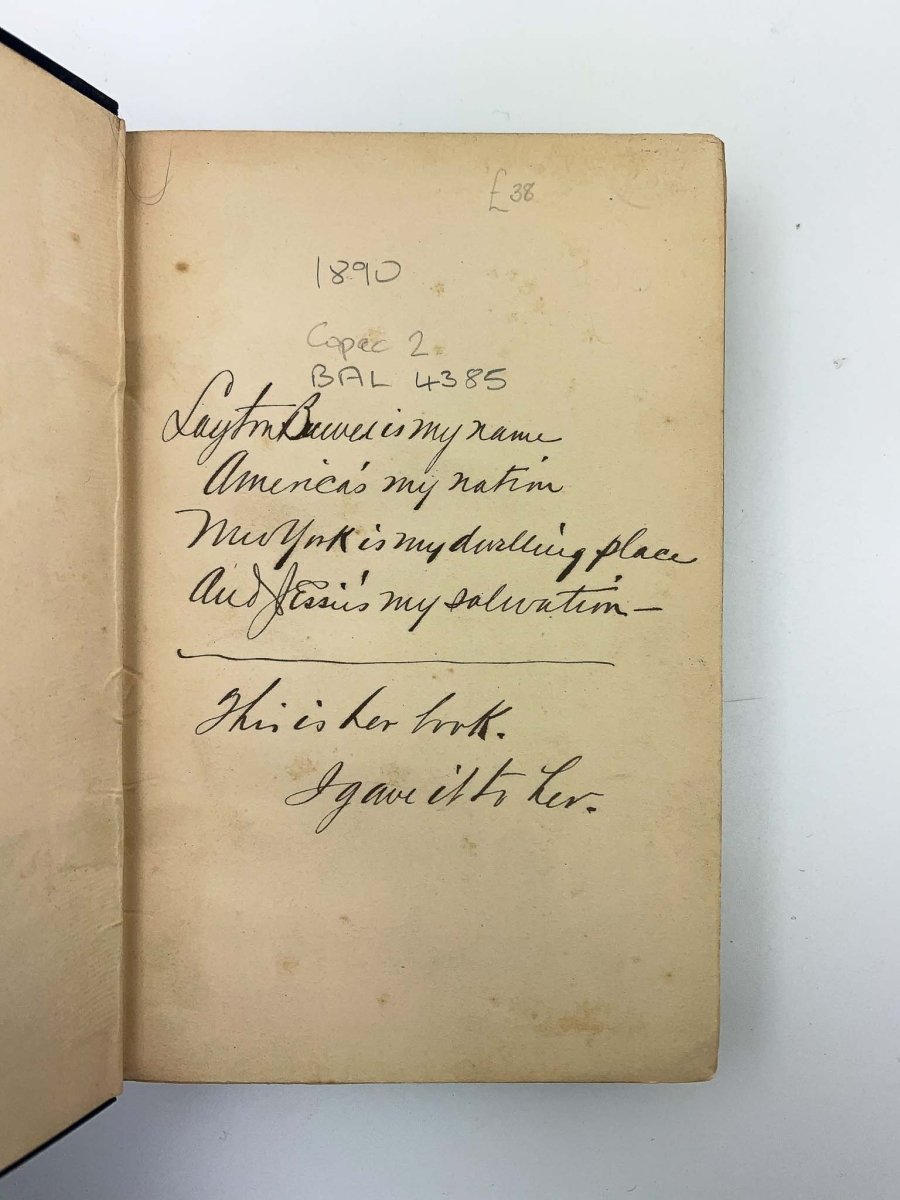 £38
1890
Copac 2
BAL 4385
Layton is my name
America's my nation
New York is my dwelling place
And Jessie's my salvation —
This is her book.
I gave it to her.